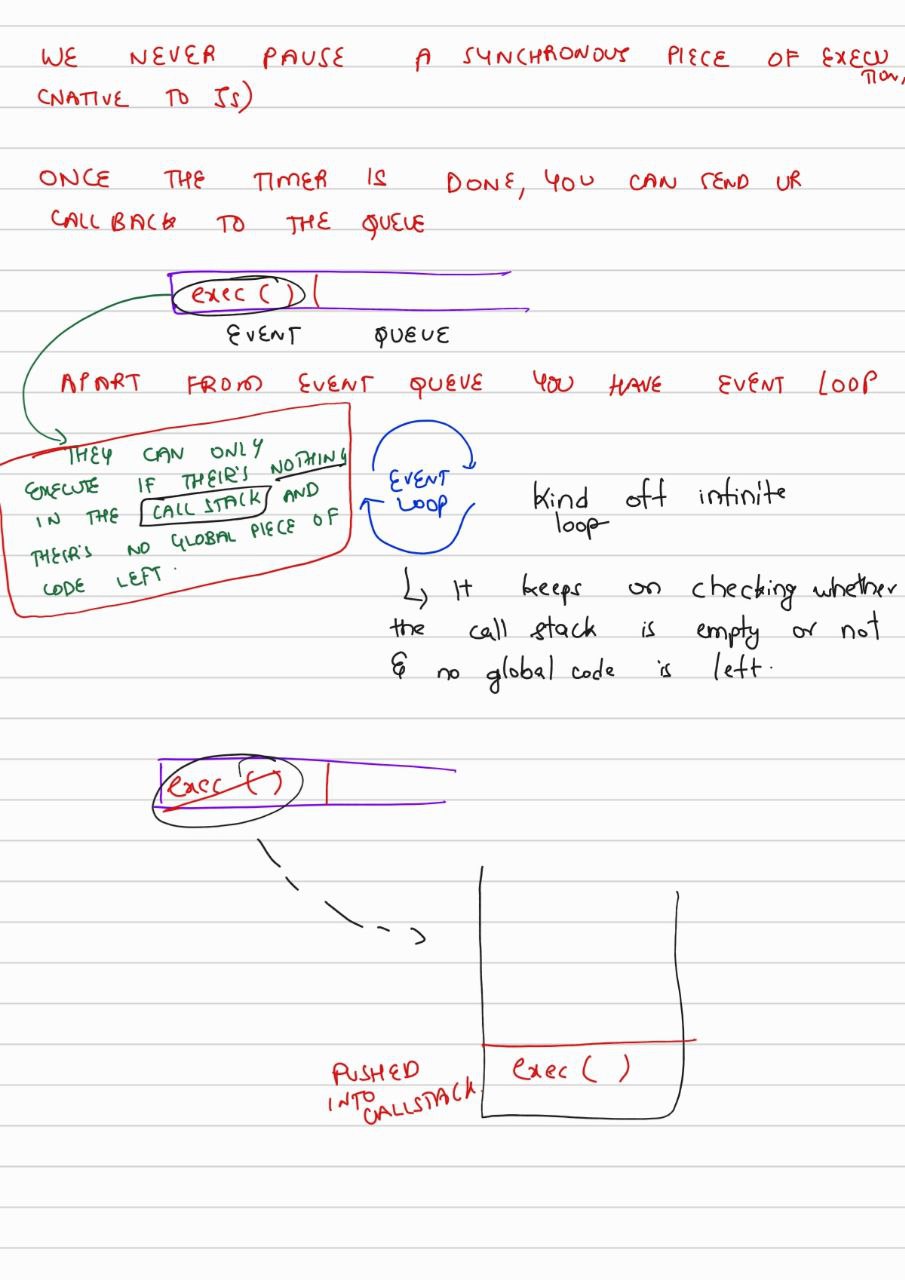 WE NEVER PAUSE A SYNCHRONOUS PIECE OF EXECUTION,
(NATIVE TO JS)
ONCE THE TIMER IS DONE, YOU CAN SEND UR
CALLBACK TO THE QUEUE
exec ( )
EVENT QUEUE
APART FROM EVENT QUEUE YOU HAVE EVENT LOOP
THEY CAN ONLY
EXECUTE IF THEIR'S NOTHING
IN THE CALL STACK AND
THEIR'S NO GLOBAL PIECE OF
CODE LEFT.
EVENT
LOOP
Kind off infinite
loop
It keeps on checking whether
the call stack is empty or not
& no global code is left.
exec ( )
PUSHED
INTO
CALLSTACK
exec ( )